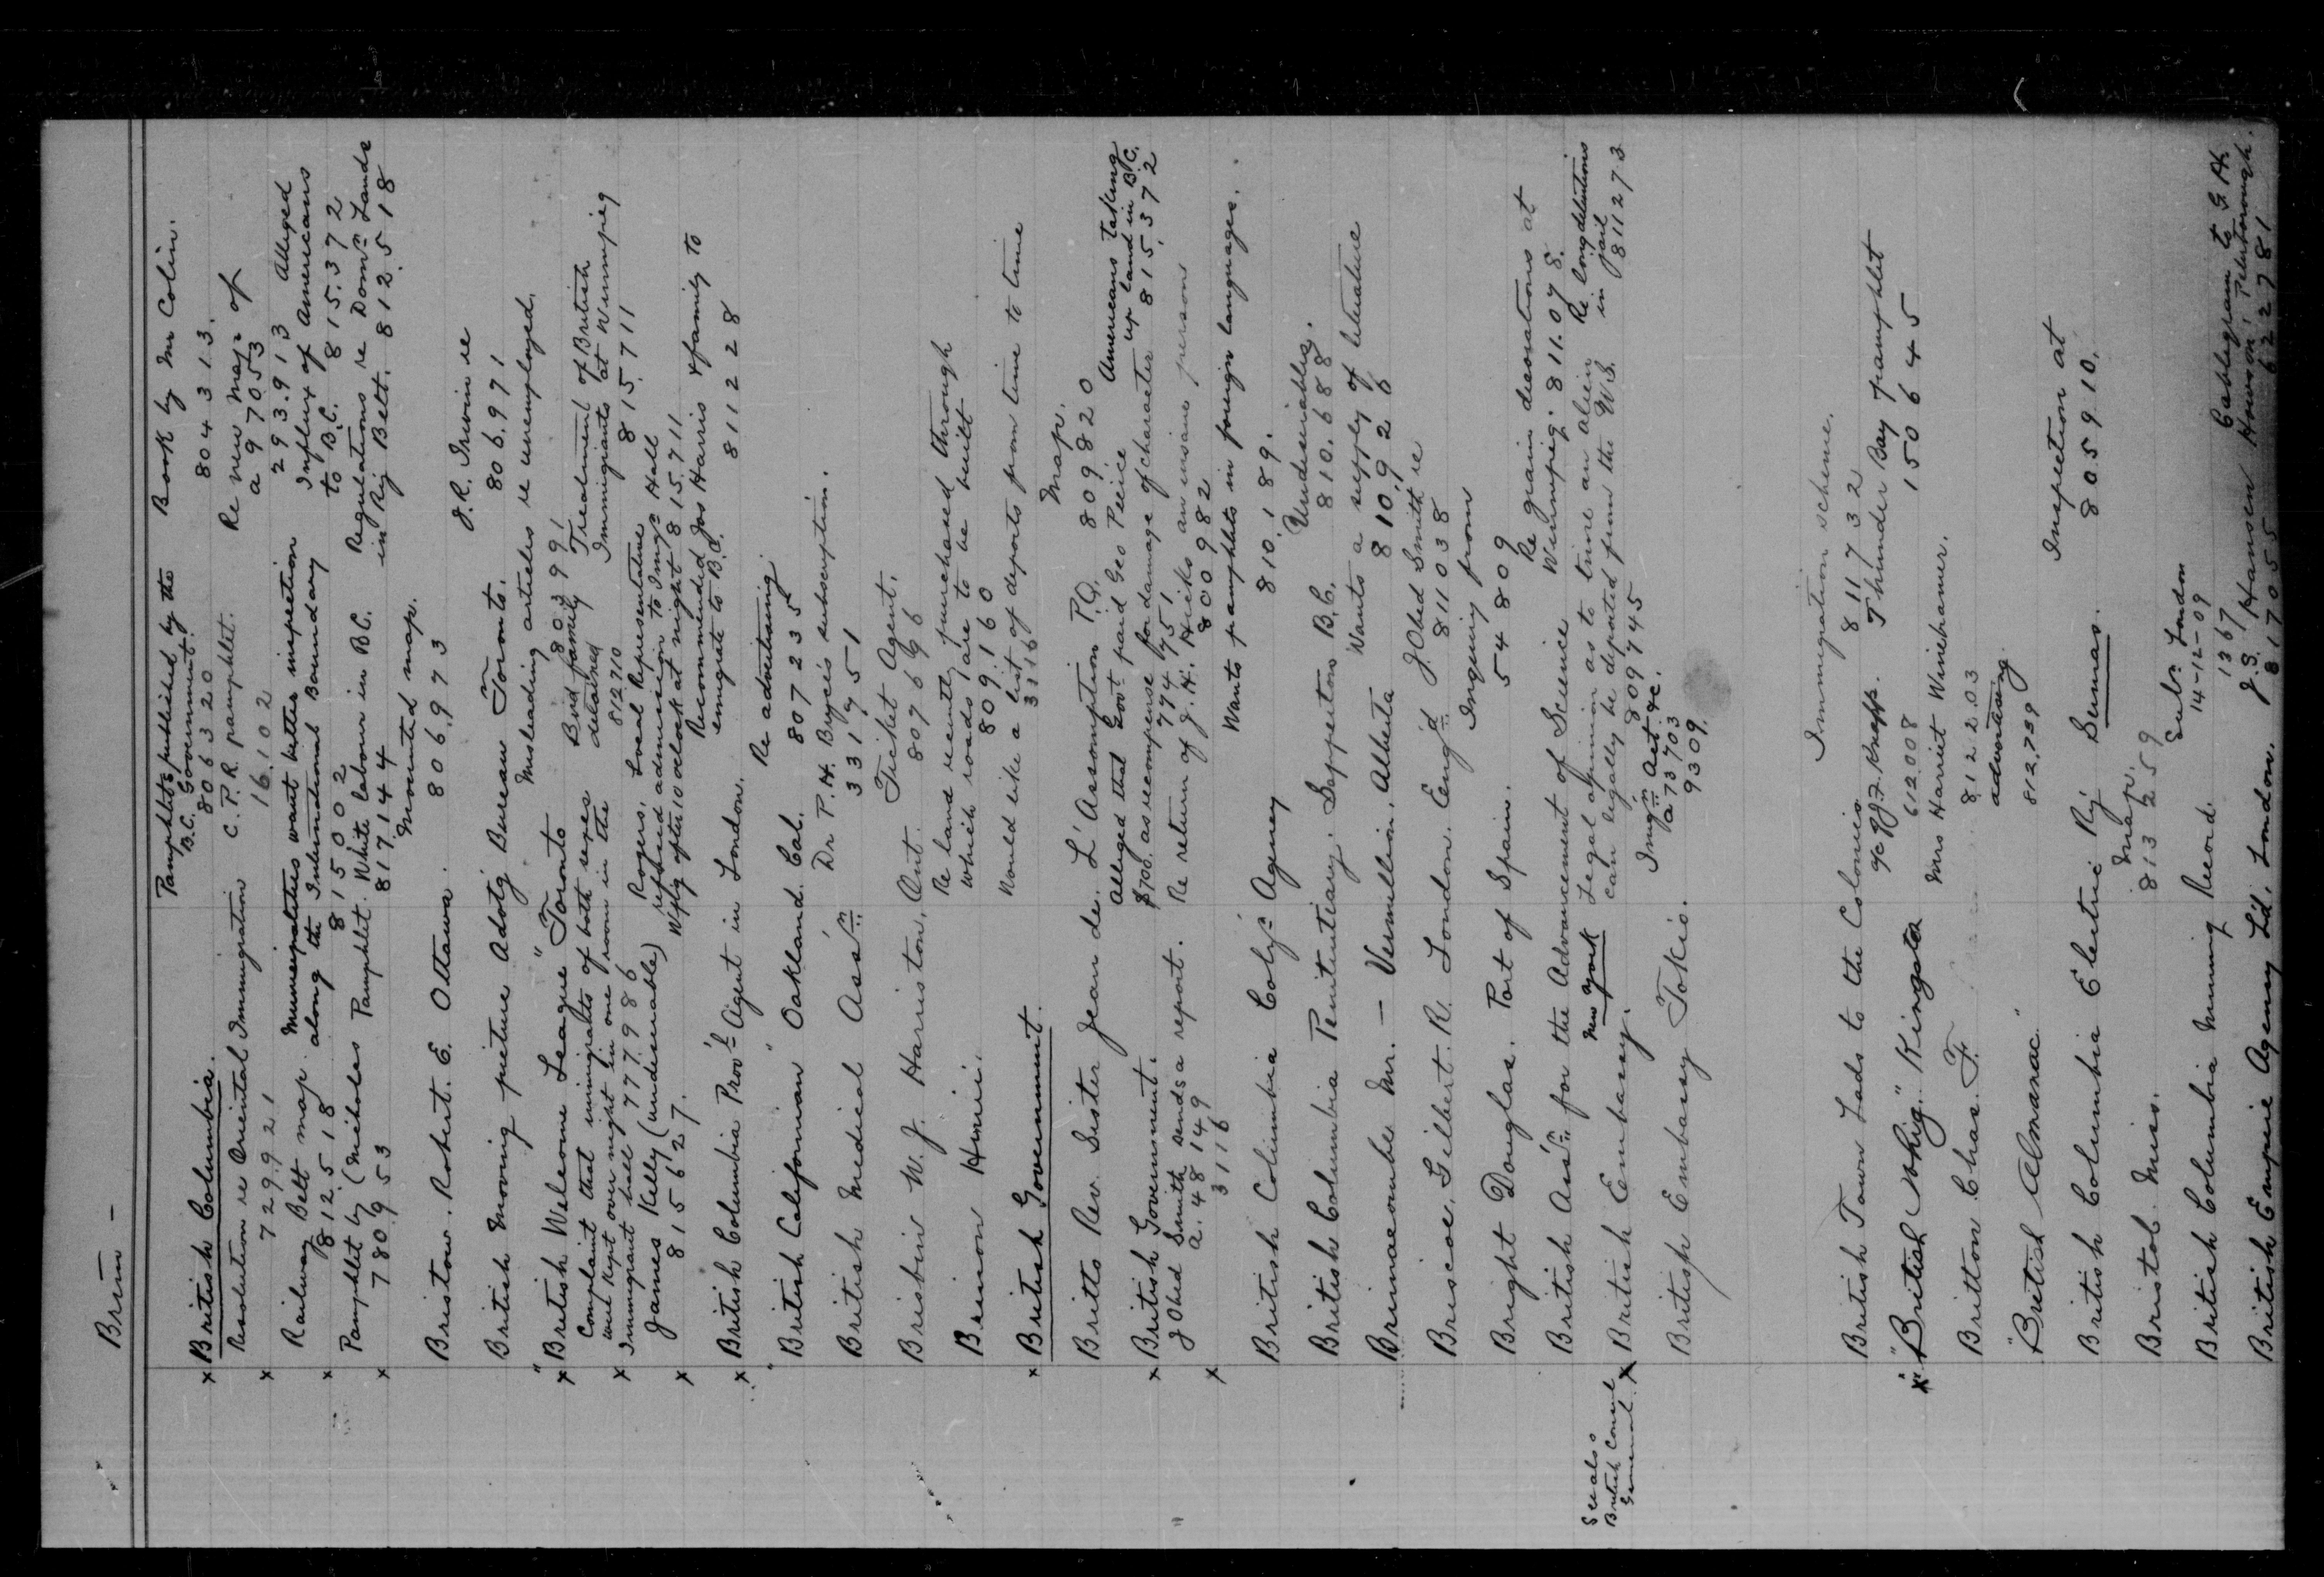 Brim -
Pamphlets published by the Book by Mr Colin.
x British Columbia. B.C. Government. 804313.
806320
Resolution re Oriental Immigration C.P.R. pamphlet. Re new map of
x 729921 16.102 a 97053
293.913
Railway Belt map. Municipalities want better inspection Alleged
x 812518 along the International Boundary Influx of Americans
815002 to B.C. 815.372
Pamphlet by (Nicholas Pamphlet. White labour in B.C. Regulations re Domn Lands
x 780953 817144 in Ry Belt. 812.518
Mounted map.
Bristow. Robert. E. Ottawa. 806.973
J.R. Irwin re
British Moving picture Advtg Bureau Toronto. 806.971
Misleading articles re unemployed.
x "British Welcome League" Toronto 803991
Complaint that immigrants of both sexes Bird family Treatment of British
x were kept over night in one room in the detained Immigrants at Winnipeg
Immigrant hall 777986 812710 815.711
James Kelly (undesirable) Rogers. Local Representative
x 815627. refused admission to Imgn Hall
Wpg after 10 oclock at night 815.711
Recommended Jos Harris & family to
x British Columbia Prov'l Agent in London. emigrate to B.C. 811228
Re advertising
"British Californian" Oakland. Cal. 807235
Dr P.H. Bryce's subscription.
British Medical Assn 331751
Ticket Agent.
Brisbin W. J. Harriston, Ont. 807696
Re land recently purchased through
which roads are to be built
Brimon Henri. 809.160
Would like a list of deports from time to time
x British Government. 3116
Map.
Britts Rev. Sister Jean de. L'Assomption P.Q. 809820
Alleged that Govt paid Geo Peice Americans taking
x British Government. $700. as recompense for damage of character up land in B.C.
J Obed Smith sends a report. 774751 815.372
a. 48149 Re return of J.H. Hicks an insane person
x 3116 800982
Wants pamphlets in foreign languages.
British Columbia Coly'n Agency 810.189.
Undesirables.
British Columbia Penitentiary. Sapperton B.C. 810.688
Wants a supply of literature
Brimacombe Mr. - Vermillion. Alberta 810926
J. Obed Smith re
Briscoe, Gilbert. R. London. Eng'd 811038
Inquiry from
Bright Douglas. Port of Spain. 54809
Re grain decorations at
British Ass'n for the Advancement of Science Winnipeg. 811.078.
See also New York Legal opinion as to time an alien Re long detentions
British Consul General x British Embassy. can legally be deported from the U.S. in jail
809745 811273
Imgn Act &c.
British Embassy Tokio. a 73703
9309.
Immigration scheme.
British Town Lads to the Colonies 811732
% of J.F. Knapp. Thunder Bay pamphlet
x "British Whig" Kingston 612008 150645
Mrs Harriet Winehamer.
Britton Chas. F. 812203
advertising
"British Almanac" 812,759
Inspection at
British Columbia Electric Ry Sumas. 805910.
Map.
Bristol. Miss. 813259
Sub: London
British Columbia Mining Record. 14-12-09
1367 Cablegram to G.H.
J.S. Hansen Howson, Peterborough.
British Empire Agency Ld, London. 817055 622781